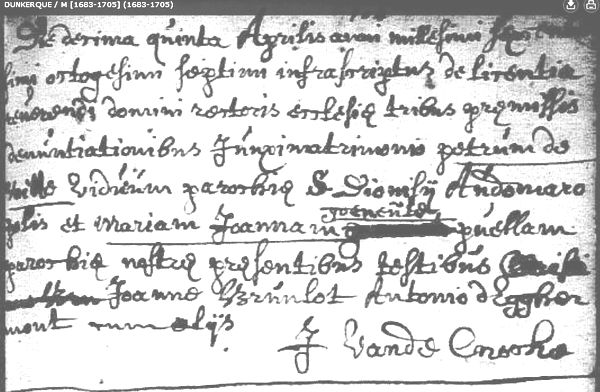 DUNKERQUE / M [1683-1705] (1683-1705)
Die decima quinta Aprilis anni millesimi
simi octogesimi septimi infrascriptus de licentia
reverendi domini rectoris ecclesię tribus pręmissis
denuntiationibus Junxi matrimonio petrum de
viduum parochię S. Dionisij Andomaro
polis et Mariam Joannam puellam
parochię nostrę pręsentibus testibus
Joanne Brunlot Antonio d'Eggher
mont cum alijs
J Vande